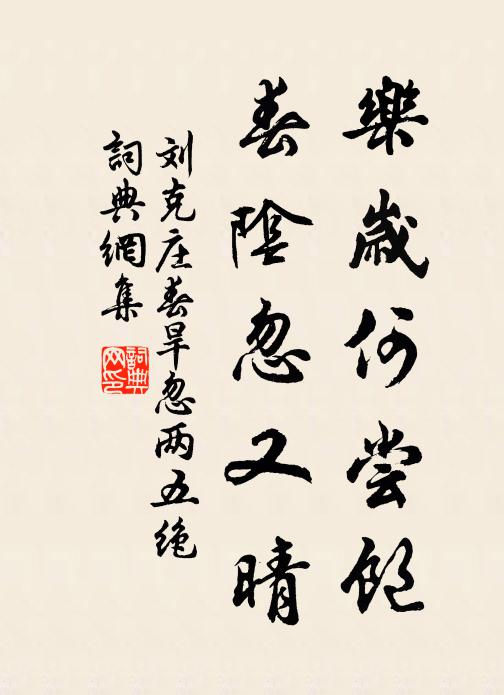 樂歲何嘗飽
春陰忽又晴
刘克庄春旱忽两五绝
詞典網集
詞典网印